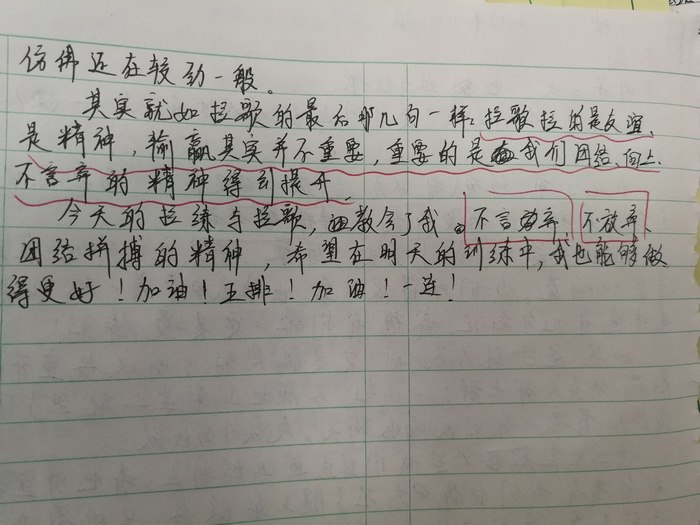 仿佛还在较劲一般。
其实就如拉歌的最后那几句一样：拉歌拉的是友谊、
是精神，输赢其实并不重要，重要的是我们团结、向上、
不言弃的精神得到提升。
今天的拉练与拉歌，教会了我。不言弃、不放弃、
团结拼搏的精神，希望在明天的训练中，我也能够做
得更好！加油！五排！加油！一连！